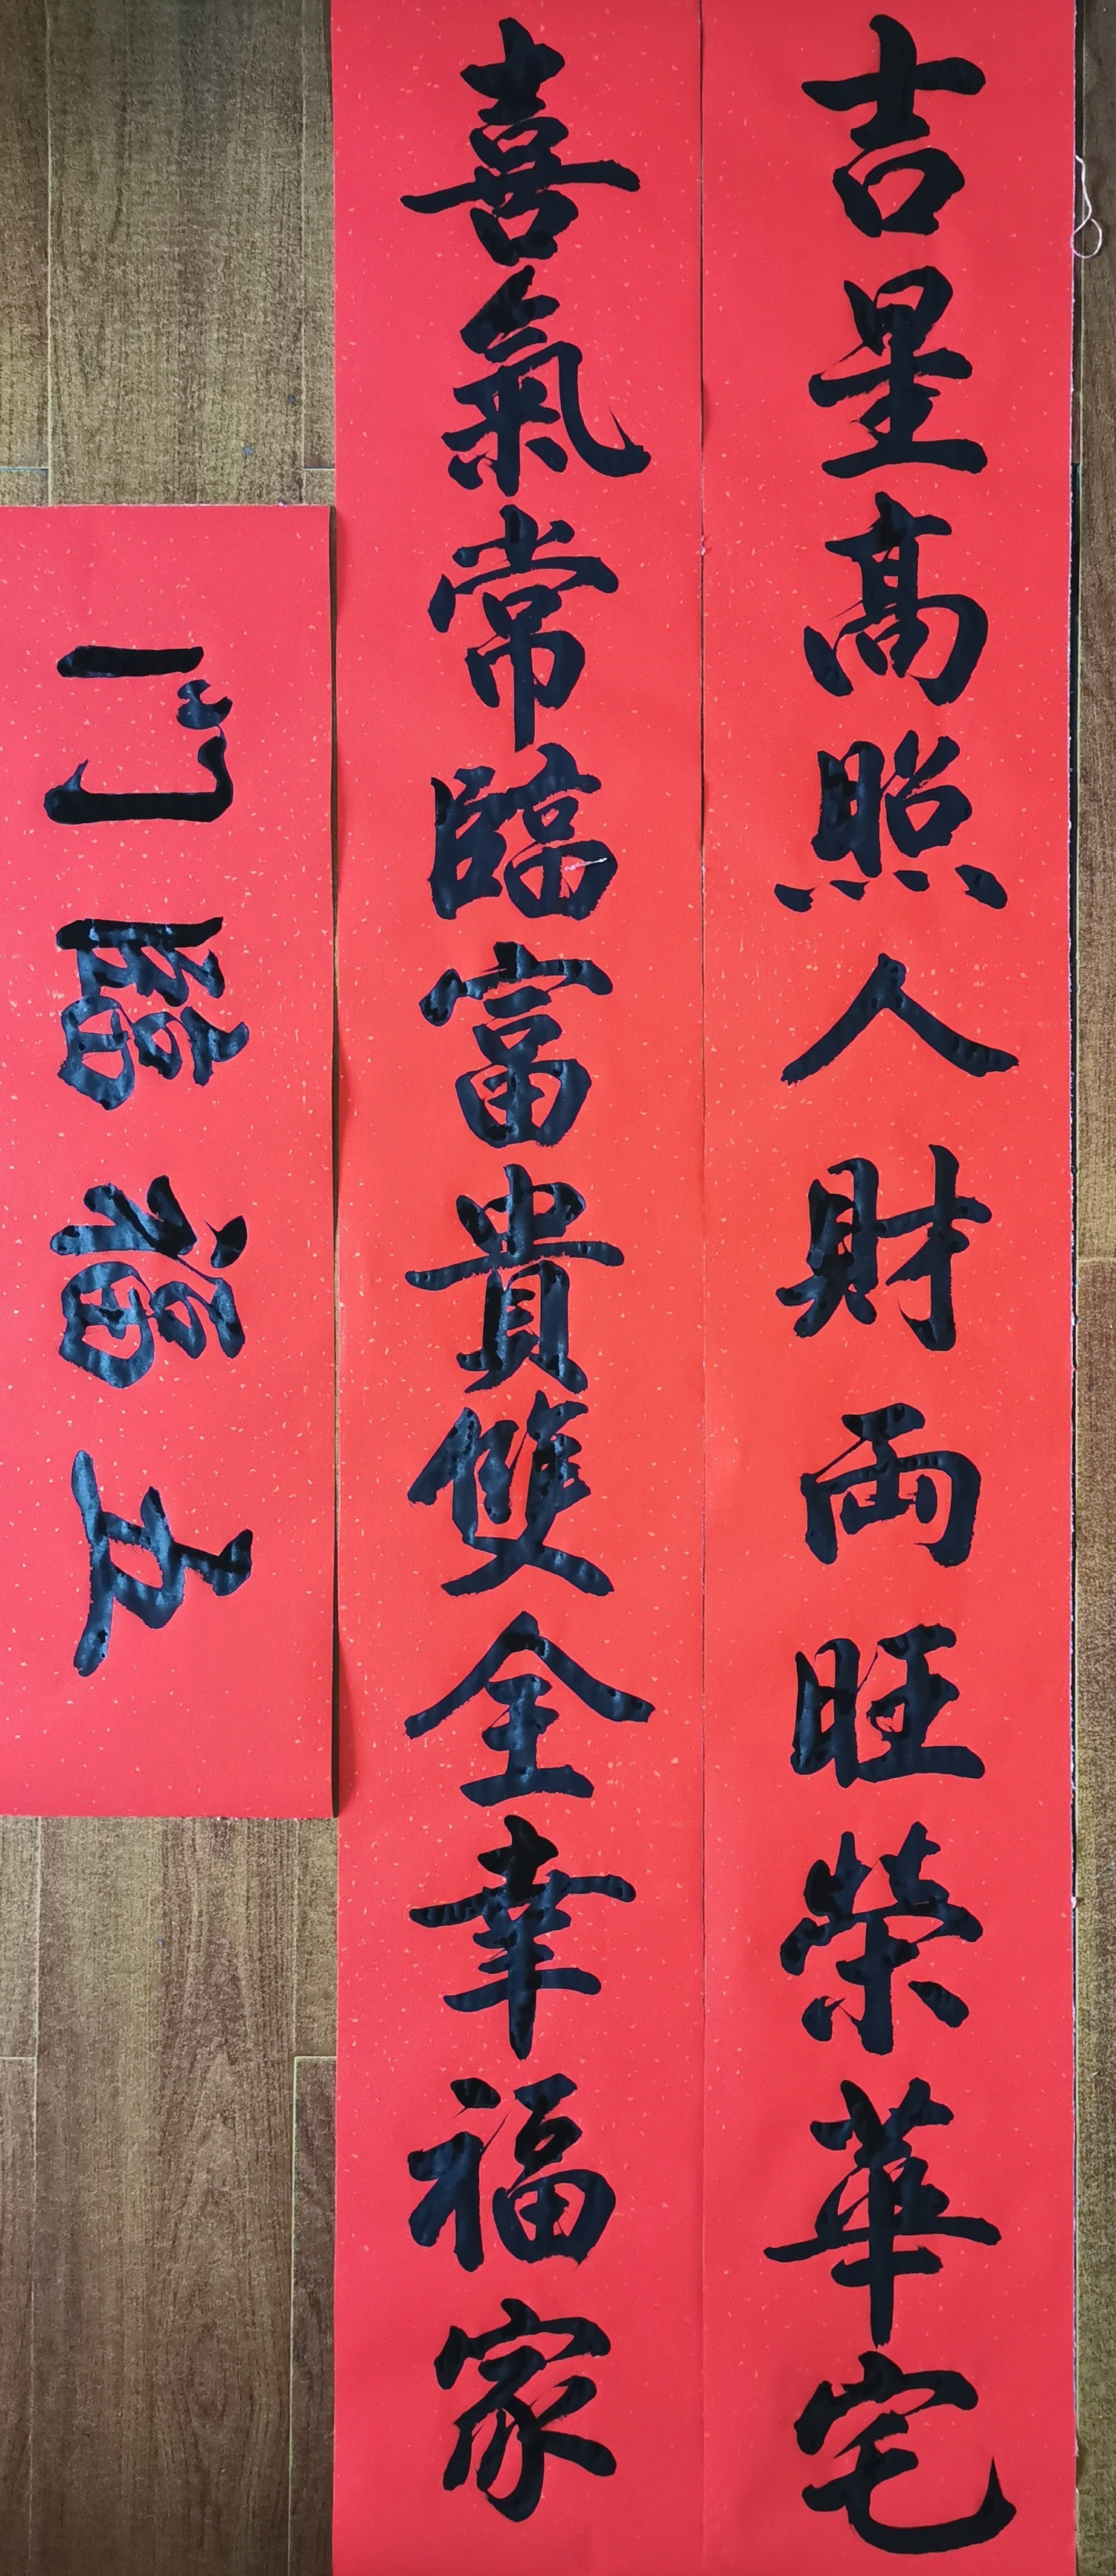 吉星髙照人財両旺榮華宅
喜氣常臨富貴雙全幸福家
五福臨門